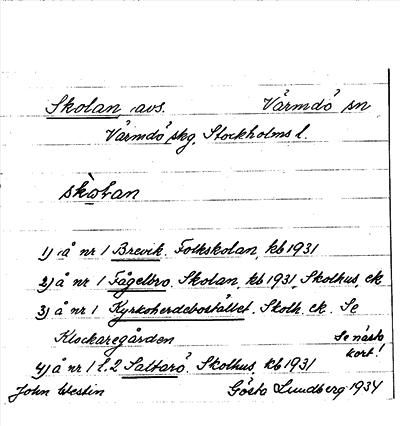 Skolan, avs. Värmdö sn
Värmdö skg, Stockholms l.
skolan
1) å nr 1 Brevik. Folkskolan, kb 1931
2) å nr 1 Fågelbro. Skolan, kb 1931 Skolhus, ek
3) å nr 1 Kyrkoherdebostället. Skolh. ek. Se
Klockaregården
Se nästa
kort!
4) å nr 1 l. 2 Saltarö. Skolhus, kb 1931
John Westin Gösta Lundberg 1934